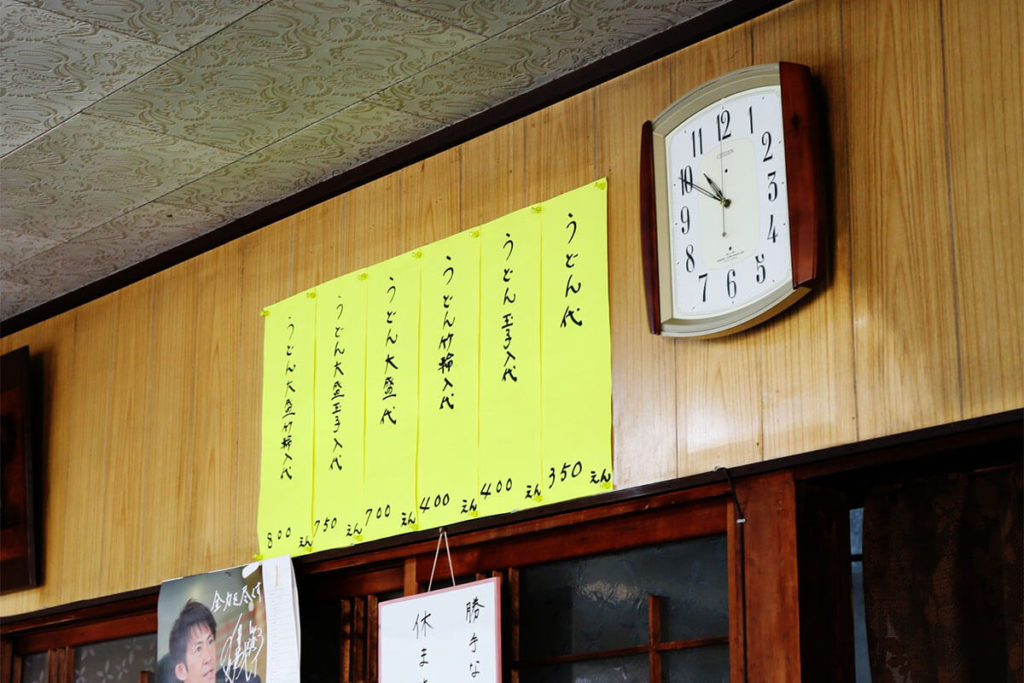 うどん代 350えん
うどん玉子入代 400えん
うどん竹輪入代 400えん
うどん大盛代 700えん
うどん大盛玉子入代 750えん
うどん大盛竹輪入代 800えん
12
1
2
3
4
5
6
7
8
9
10
11
CITIZEN
勝手な
休ま
全力を尽くす